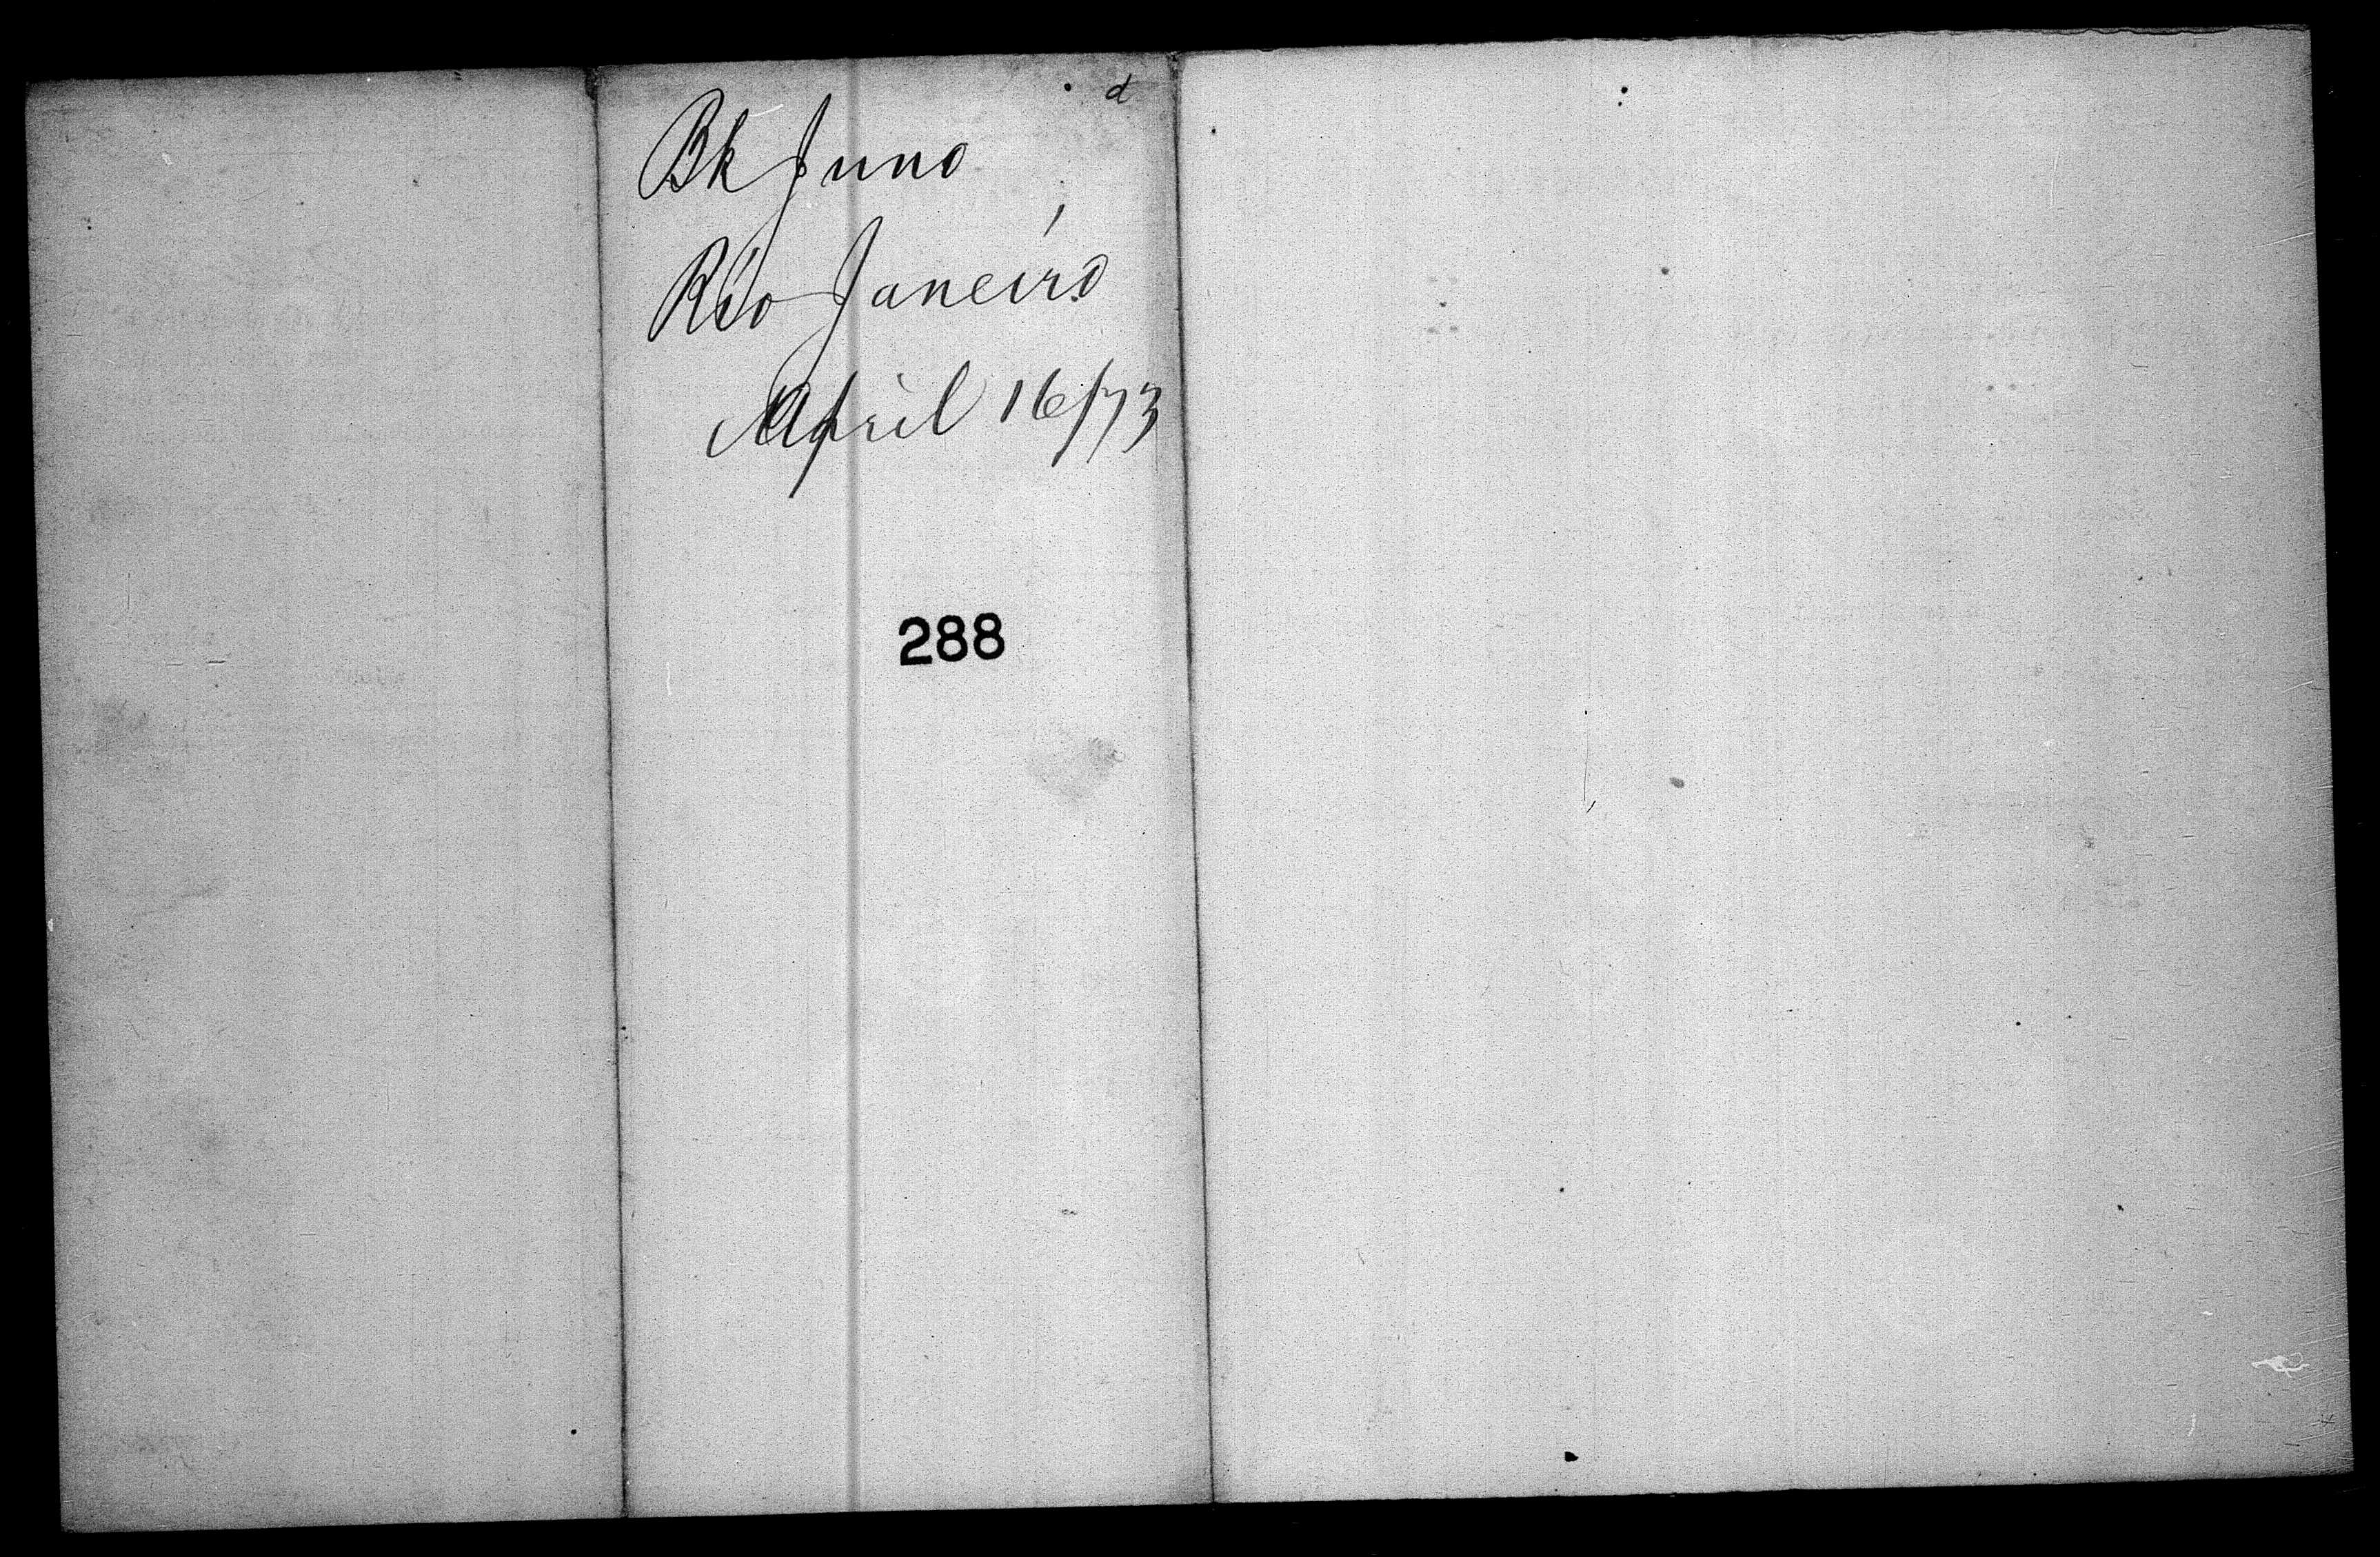 d
Bk Juno
Rio Janeiro
April 16/73
288